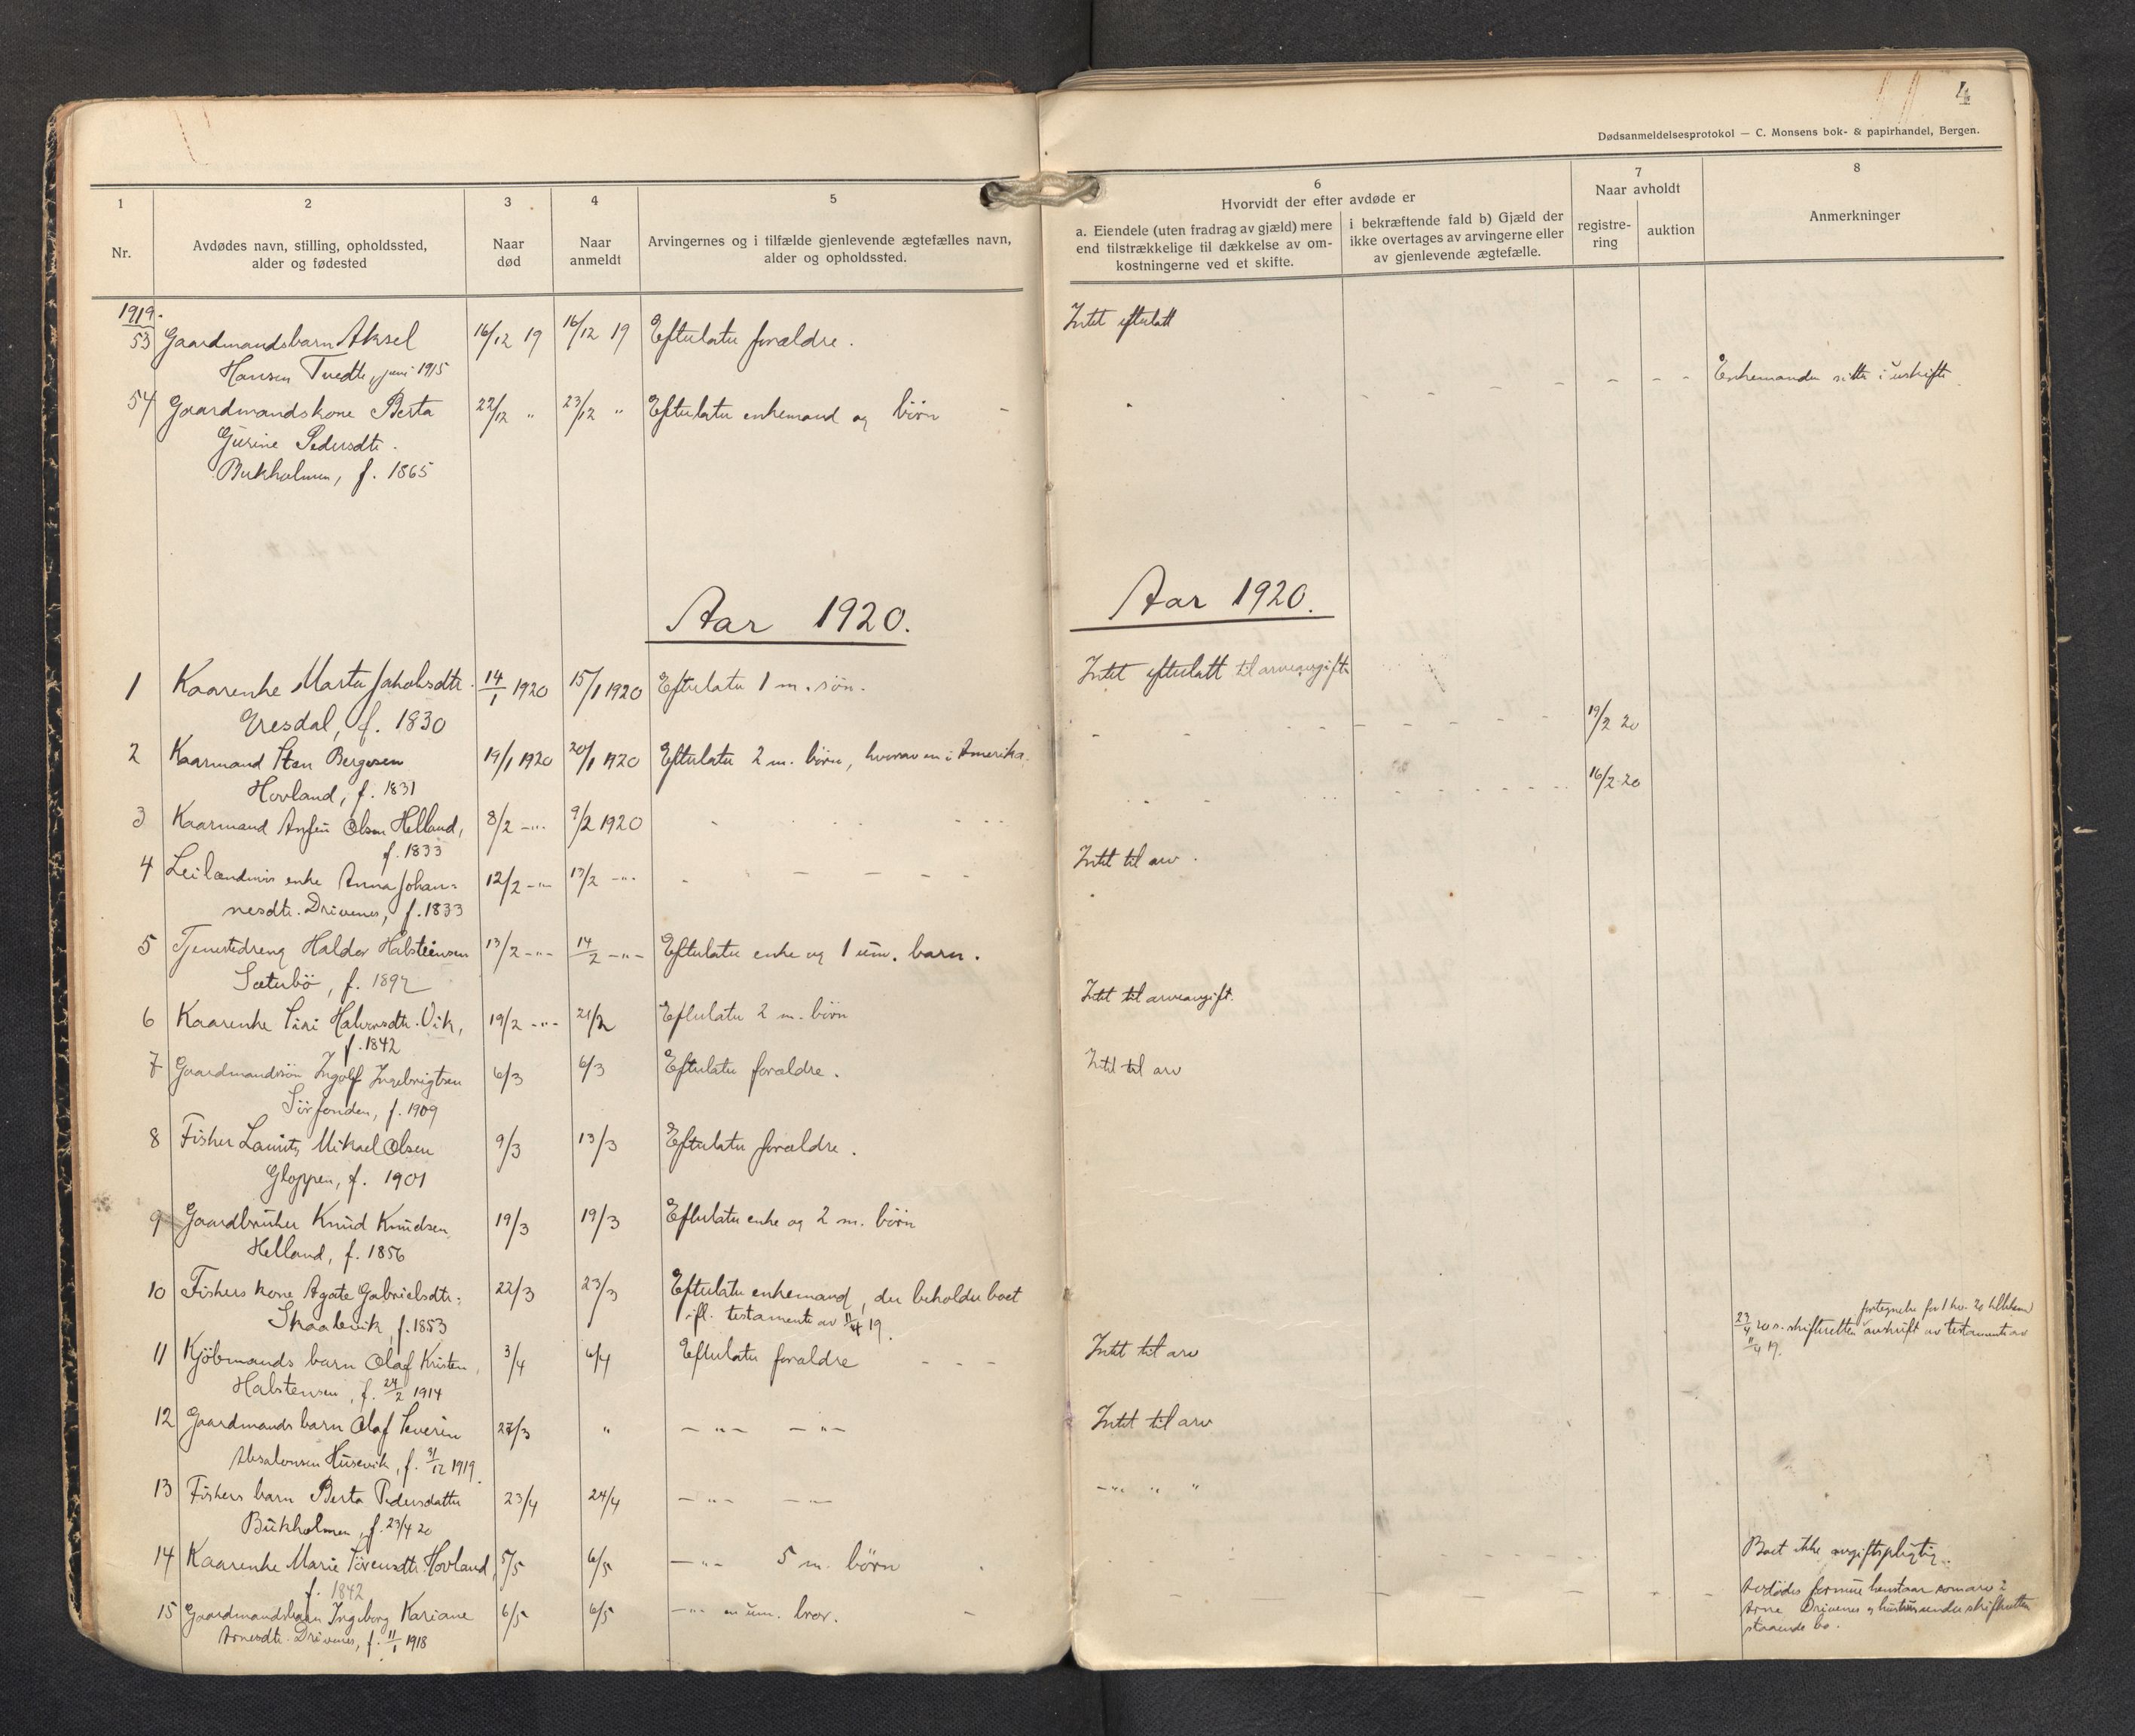 4
Dødsanmeldelsesprotokol — C. Monsens bok- & papirhandel, Bergen.
1
Nr.
2
Avdødes navn, stilling, opholdssted,
alder og fødested
3
Naar
død
4
Naar
anmeldt
5
Arvingernes og i tilfælde gjenlevende ægtefælles navn,
alder og opholdssted.
6
Hvorvidt der efter avdøde er
a. Eiendele (uten fradrag av gjæld) mere
end tilstrækkelige til dækkelse av om-
kostningerne ved et skifte.
i bekræftende fald b) Gjæld der
ikke overtages av arvingerne eller
av gjenlevende ægtefælle.
7
Naar avholdt
registre-
ring
auktion
8
Anmerkninger
1919.
53 Gaardmandsbarn Aksel 16/12 19 16/12 19 Efterlater forældre. Intet efterlatt
Hansen Tvedte, juni 1915
54 Gaardmandskone Berta 22/12 " 23/12 " Efterlater enkemand og børn Enkemanden sitter i uskifte
Gurine Pedersdtr.
Bukholmen, f. 1865
Aar 1920. Aar 1920.
1 Kaarenke Marta Jakobsdtr. 14/1 1920 15/1 1920 Efterlater 1 m. søn. Intet efterlatt til arveavgift
Eresdal, f. 1830
2 Kaarmand Sten Bergesen 19/1 1920 20/1 1920 Efterlater 2 m. børn, hvorav en i Amerika. 19/2 20
Hovland, f. 1831
3 Kaarmand Anfin Olsen Helland, 8/2 -"- 9/2 1920 16/2 20
f. 1833
4 Leilændings enke Anna Johan- 12/2 -"- 13/2 -"- Intet til arv.
nesdtr. Drivenes, f. 1833
5 Tjenestedreng Haldor Halsteinsen 13/2 -"- 14/2 -"- Efterlater enke og 1 um. barn.
Sæterbö, f. 1892
6 Kaarenke Siri Halvorsdtr. Vik, 19/2 -"- 21/2 Efterlater 2 m. börn Intet til arveavgift.
f. 1842
7 Gaardmandssön Ingolf Ingebrigtsen 6/3 6/3 Efterlater forældre. Intet til arv
Sörfonden, f. 1909
8 Fisker Lauritz Mikael Olsen 9/3 13/3 Efterlater forældre.
Gloppen, f. 1901
9 Gaardbruker Knud Knudsen 19/3 19/3 Efterlater enke og 2 m. börn
Helland, f. 1856
10 Fiskers kone Agate Gabrielsdtr. 22/3 23/3 Efterlater enkemand, der beholder boet
Skaalevik, f. 1853 ifl. testamente av 11/4 19.
23/4 20 s. skifteretten avskrift av testament av
11/4 19.
11 Kjöbmands barn Olaf Kristen 3/4 6/4 Efterlater forældre Intet til arv
Halstensen, f. 24/2 1914
12 Gaardmands barn Olaf Severin 27/3 " -"- -"- Intet til arv
Absalonsen Husevik, f. 31/12 1919.
13 Fiskers barn Berta Pedersdatter 23/4 24/4 -"- -"- -"- " "
Bukholmen, f. 23/4 20
14 Kaarenke Marie Sörensdtr. Hovland, 5/5 6/5 -"- 5 m. börn Boet ikke avgiftspligtig.
f. 1842
15 Gaardmandsbarn Ingeborg Kariane 6/5 6/5 -"- en um. bror.
Arnesdtr. Drivenes, f. 11/1 1918
Avdödes formue henstaar som arv i
Arne Drivenes og hustrus under skifteretten
staaende bo.